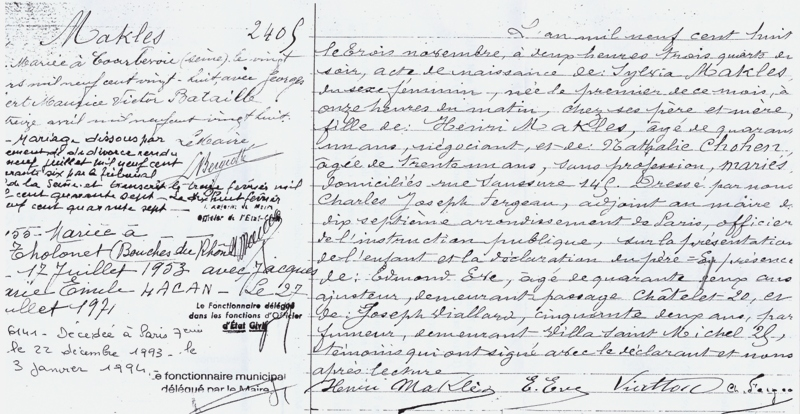 Makles
2405
Mariée à Courbevoie (Seine), le vingt
mil neuf cent vingt-huit avec Georges
ert Maurice Victor Bataille
avril mil neuf cent vingt huit.
le Maire
- Mariage dissous par
ement de divorce rendu
neuf juillet mil neuf cent
rante six par le tribunal
de la Seine et transcrit le treize février mil
cent quarante sept - le dix huit février
uf cent quarante sept -
officier de l'Etat-Civil
55 - Mariée à
Tholonet (Bouches du Rhône)
17 Juillet 1953 avec Jacques
arie Emile LACAN - Le 27
uillet 1971
Le Fonctionnaire délégué
dans les fonctions d'Officier
d'État Civil
6141 - Décédée à Paris 7eme
le 22 décembre 1993 - le
3 janvier 1994
e fonctionnaire municipal
délégué par le Maire
L'an mil neuf cent huit
le trois novembre, à deux heures trois quarts du
soir, acte de naissance de: Sylvia Makles,
du sexe féminin, née le premier de ce mois, à
onze heures du matin, chez ses père et mère,
fille de: Henri Makles, âgé de quarante
un ans, négociant, et de: Nathalie Chohen,
âgée de trente un ans, sans profession, mariés,
domiciliés rue Saussure 145. Dressé par nous
Charles Joseph Fergeau, adjoint au maire du
dix septième arrondissement de Paris, officier
de l'instruction publique, sur la présentation
de l'enfant et la déclaration du père = En présence
de: Edmond Eve, âgé de quarante deux ans
ajusteur, demeurant passage Châtelet 20, et
de: Joseph Viallard, cinquante deux ans, par
fumeur, demeurant Villa Saint Michel 25,
témoins qui ont signé avec le déclarant et nous
après lecture
Henri Maklès E. Eve Ch. Fergeau